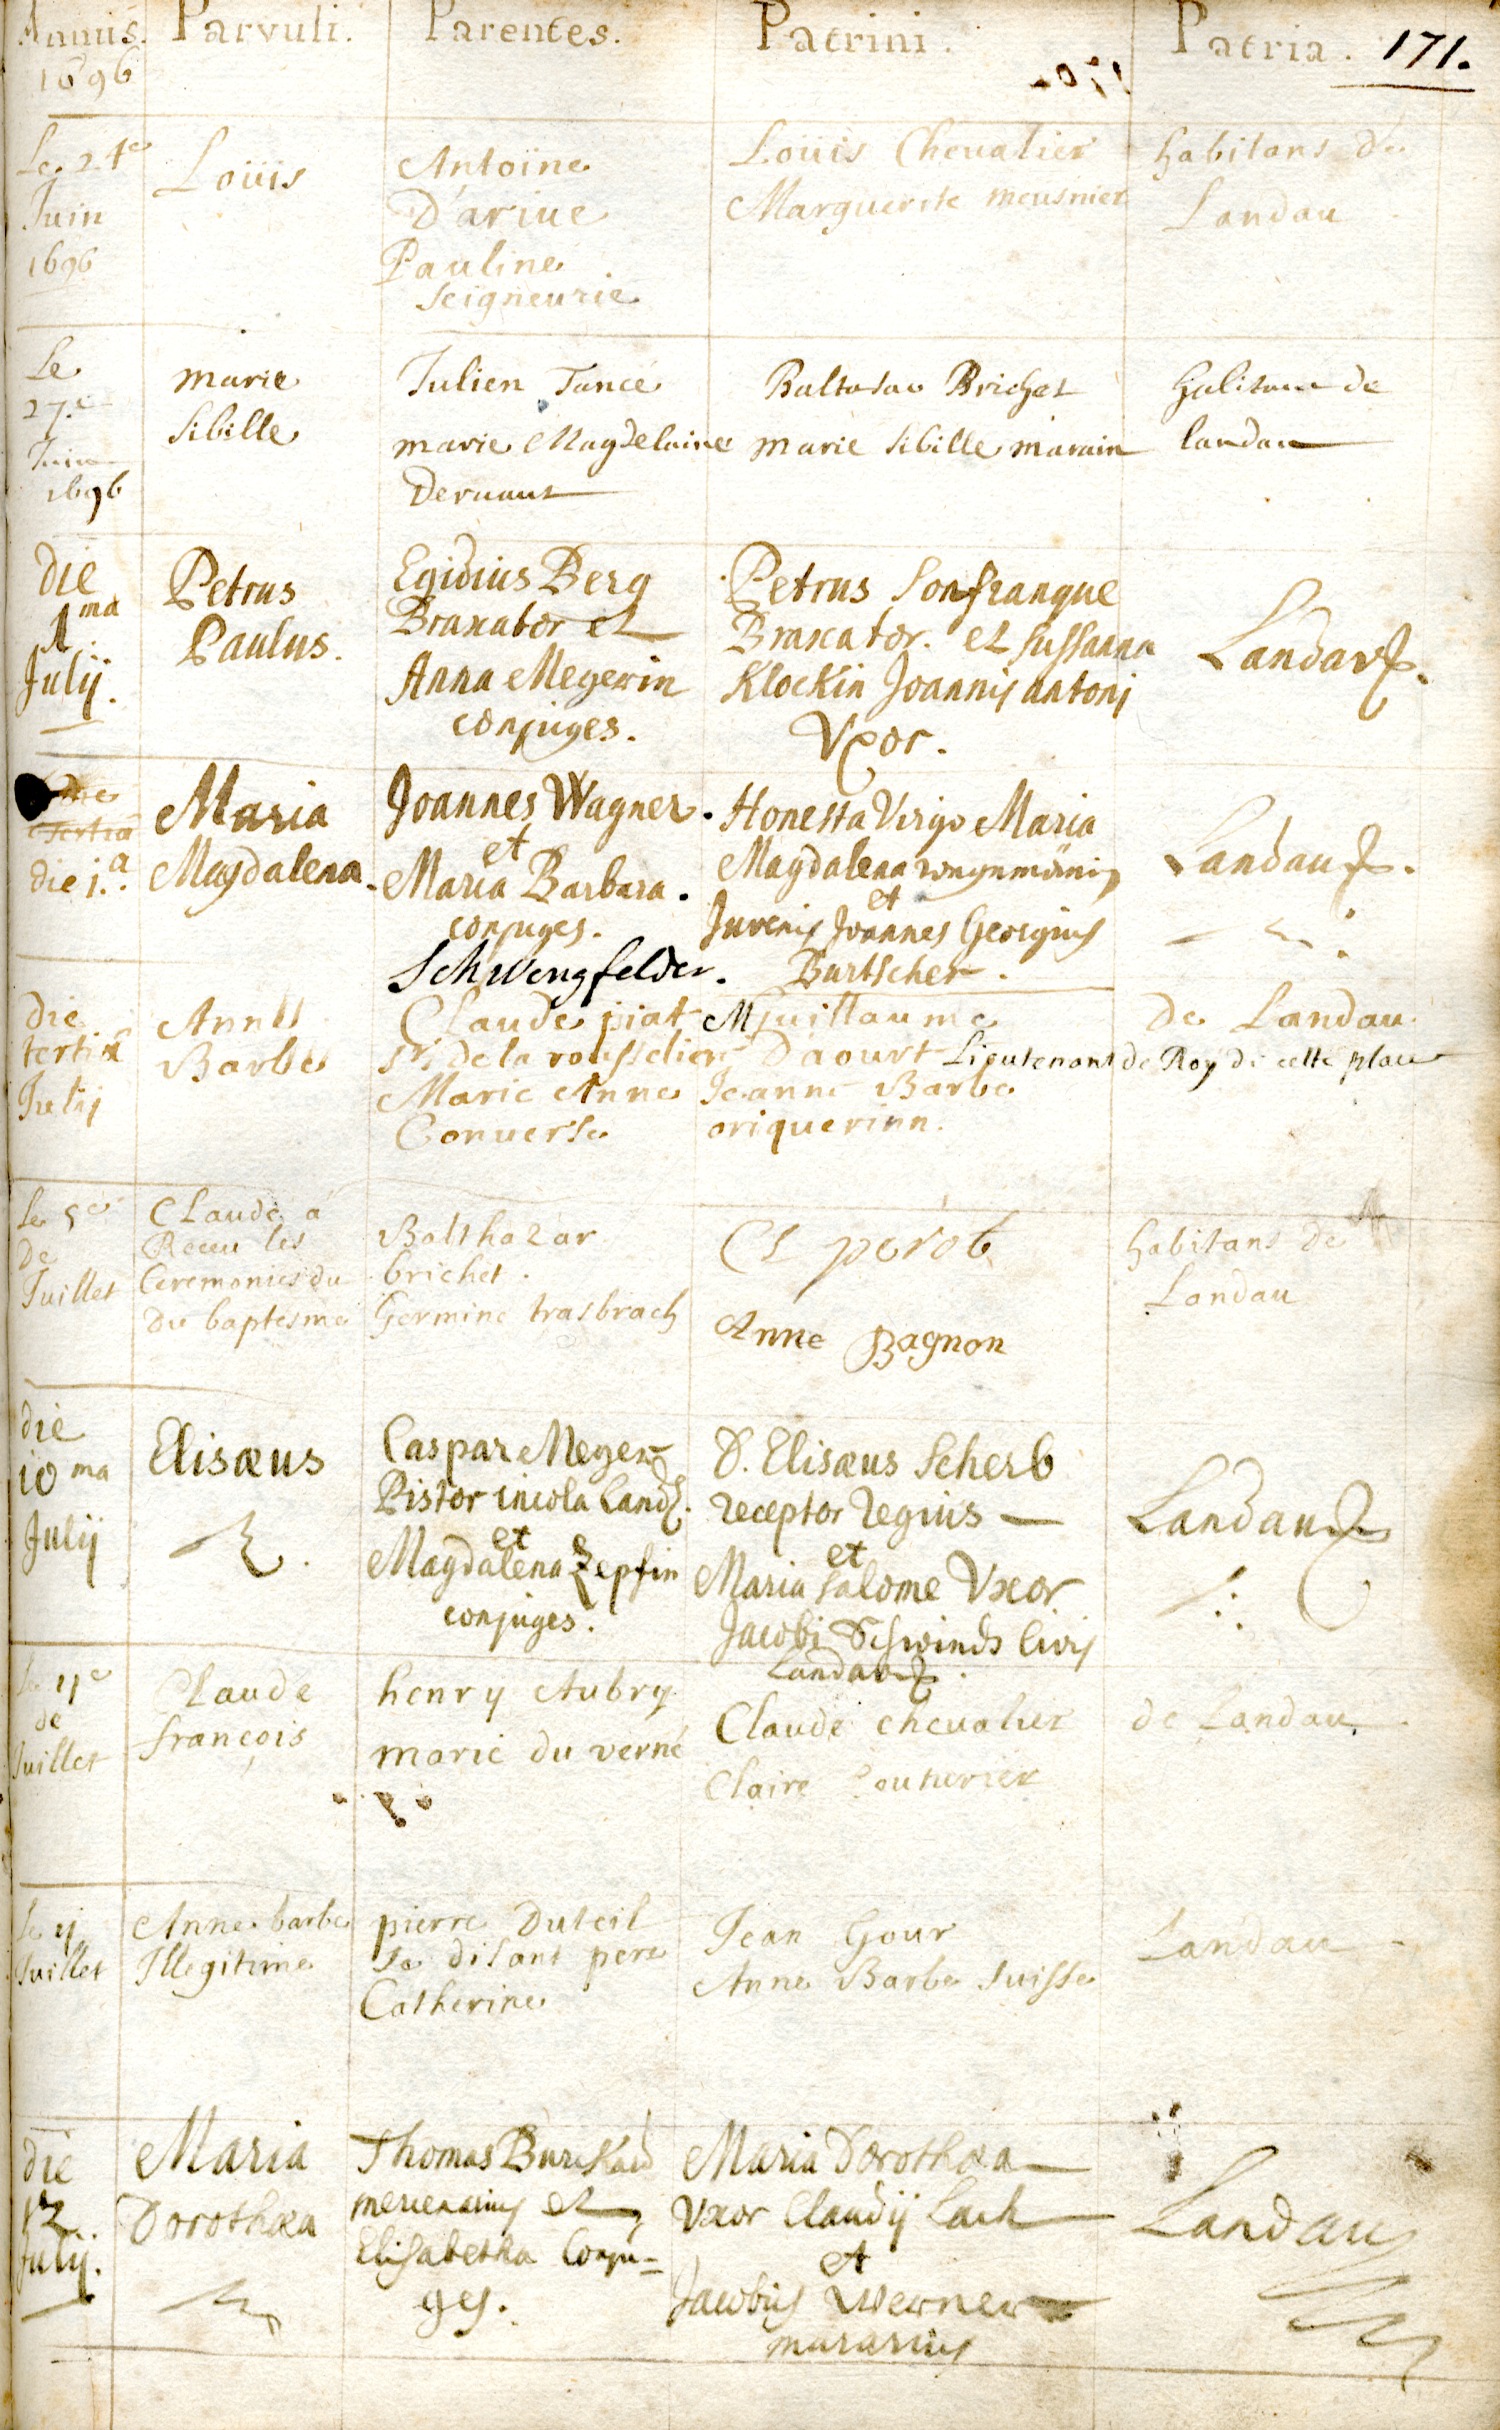 Annus. Parvuli. Parentes. Patrini. Patria. 171.
1696
170.
Le 24e
Juin
1696
Loüis
Antoine
D'ariue
Pauline
Seigneurie
Loüis Cheualier
Marguerite meusnier
habitans de
Landau
Le
27.e
Juin
1696
marie
Sibille
Julien Tancé
marie Magdelaine
Deruaux
Baltasar Brichet
marie Sibille marain
habitans de
landau
die
1ma
Julij.
Petrus
Paulus.
Egidius Berg
Braxator et
Anna Megerin
conjuges.
Petrus Sonfranque
Braxator. et Sussanna
Klockin Joannis antonj
Vxor.
Landav.
tertia
die 1.a
Maria
Magdalena.
Joannes Wagner.
et
Maria Barbara.
conjuges.
Schwengfelder.
Honesta Virgo Maria
Magdalena
et
Juvenis Joannes Georgius
Burtscher.
Landau.
die
tertia
Julij
Anne
Barbe
Claude piat
Sr. de la rousselier
Marie Anne
Conuerse
M guillaume
Daourt Lieutenant de Roy de cette place
Jeanne Barbe
oriquerinn.
De Landau
Le 5e
De
Juillet
Claude a
Receu les
Ceremonies du
Du baptesme
Balthazar
brichet.
Germine trasbrach
Cl perot
Anne Bagnon
habitans de
Landau
die
10ma
Julij
Elisæus
Caspar Meger
Pistor incola Land.
et
Magdalena Zepfin
conjuges.
D. Elisæus Scherb
receptor regius
et
Maria Salome Vxor
Jacobi Schwinds Civis
Landau.
Landau
Le 11e
de
Juillet
Claude
françois
henry Aubry
marie du verné
Claude cheualier
Claire
de Landau
Le 11
Juillet
Anne barbe
Illegitime
pierre Duteil
se disant pere
Catherine
Jean Gour
Anne Barbe Suisse
Landau
die
12
Julij.
Maria
Dorothæa
Thomas Burckard
mercenarius et
Elisabetha Conju=
ges.
Maria Dorothæa
Vxor Claudij Lach
et
Jacobus Werner
murarius
Landau